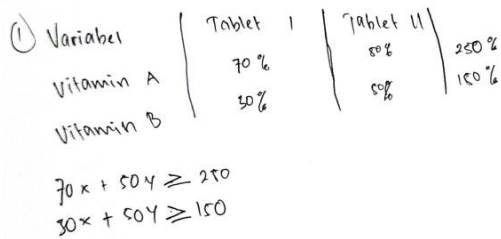 ① Variabel | Tablet I | Tablet II |
Vitamin A | 70% | 50% | 250%
Vitamin B | 30% | 50% | 150%
70x + 50y ≥ 250
30x + 50y ≥ 150